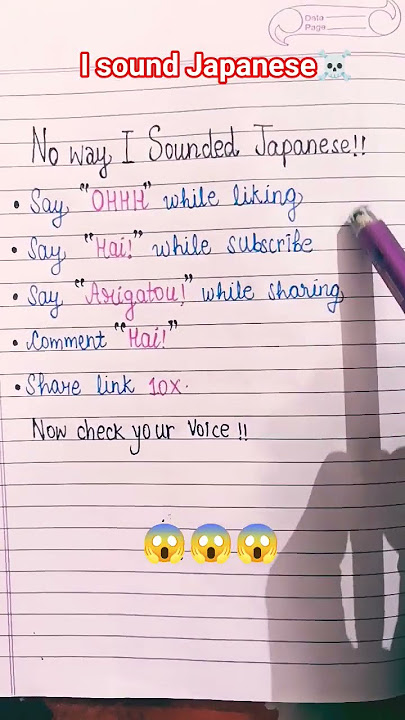 Date
Page
I sound Japanese☠️
No way I Sounded Japanese!!
• Say "OHHH" while liking
• Say "Hai!" while subscribe
• Say "Arigatou!" while sharing
• Comment "Hai!"
• Share link 10x.
Now check your Voice !!
😱😱😱